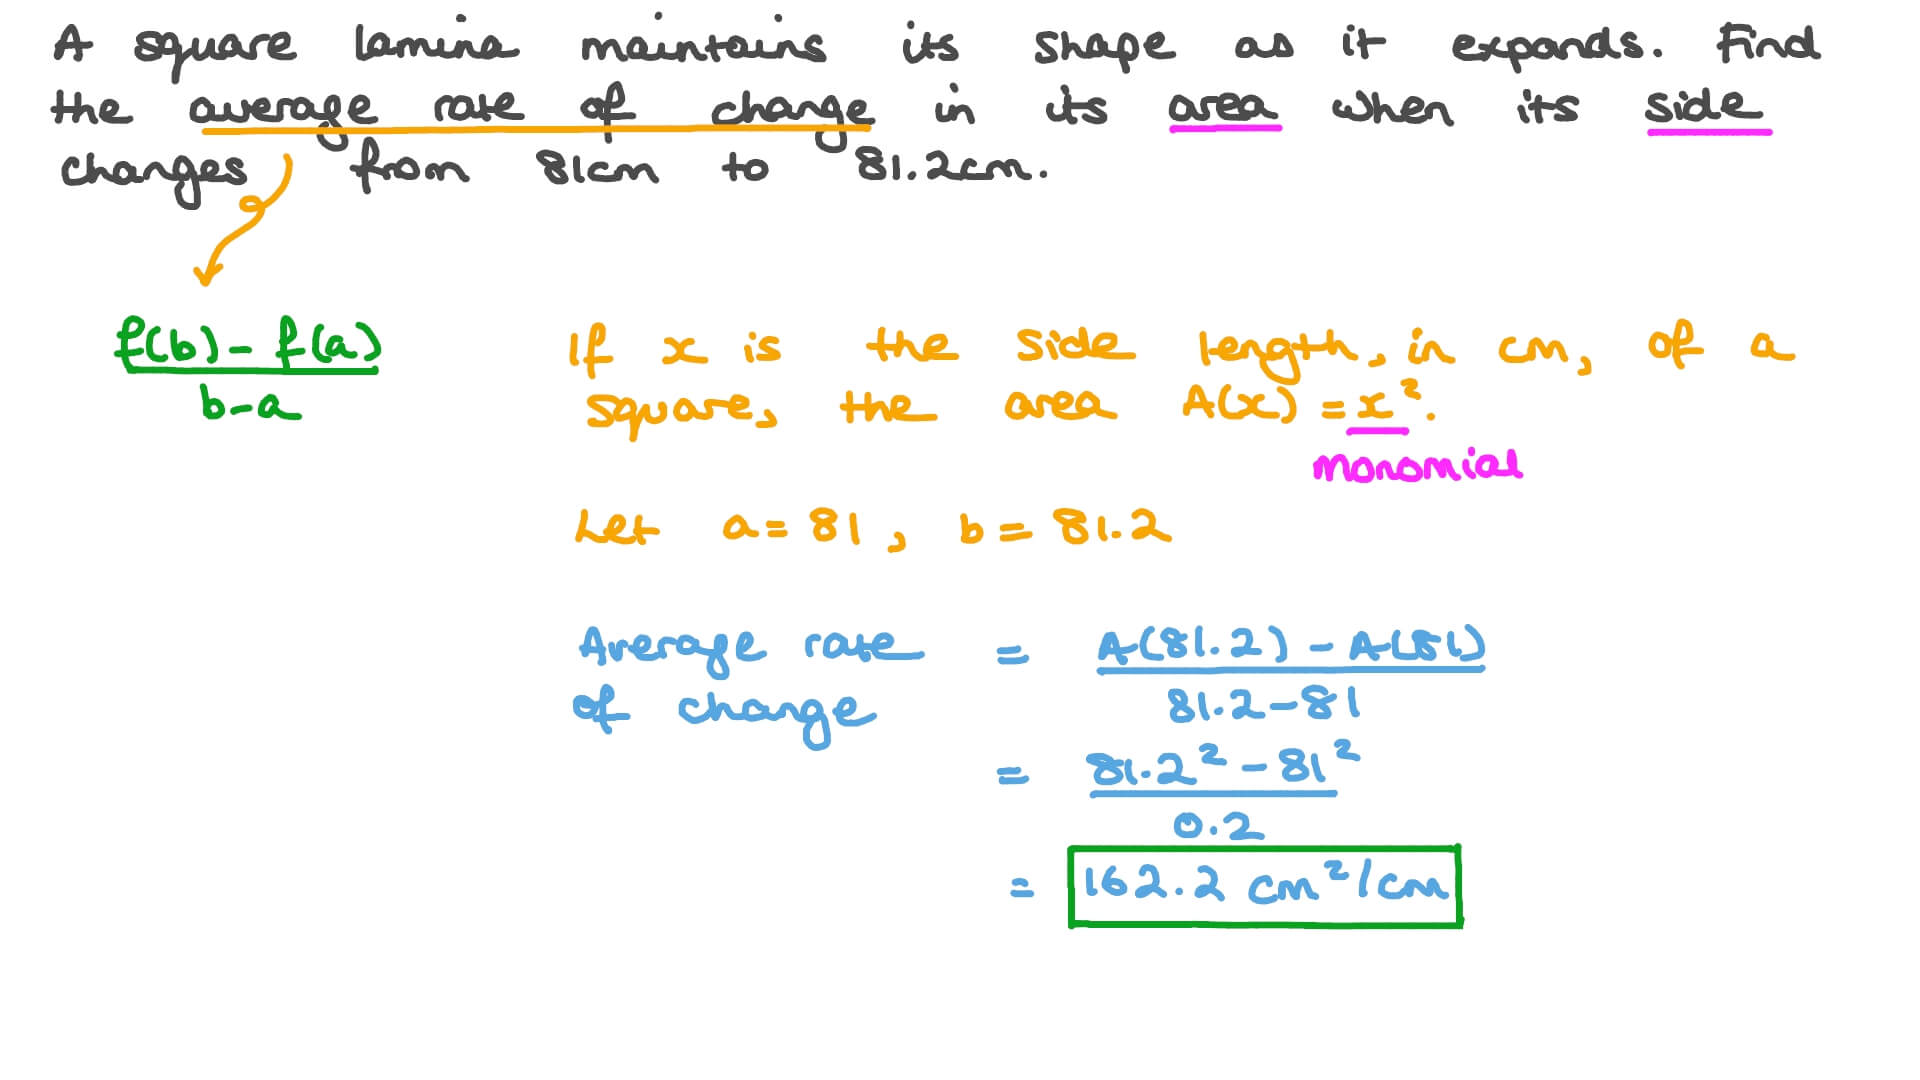 A square lamina maintains its shape as it expands. Find
the average rate of change in its area when its side
changes from 81cm to 81.2cm.
f(b) - f(a)
b-a
If x is the side length, in cm, of a
square, the area A(x) = x².
monomial
Let a = 81, b = 81.2
Average rate
of change
= A(81.2) - A(81)
81.2-81
= 81.2² - 81²
0.2
= 162.2 cm²/cm